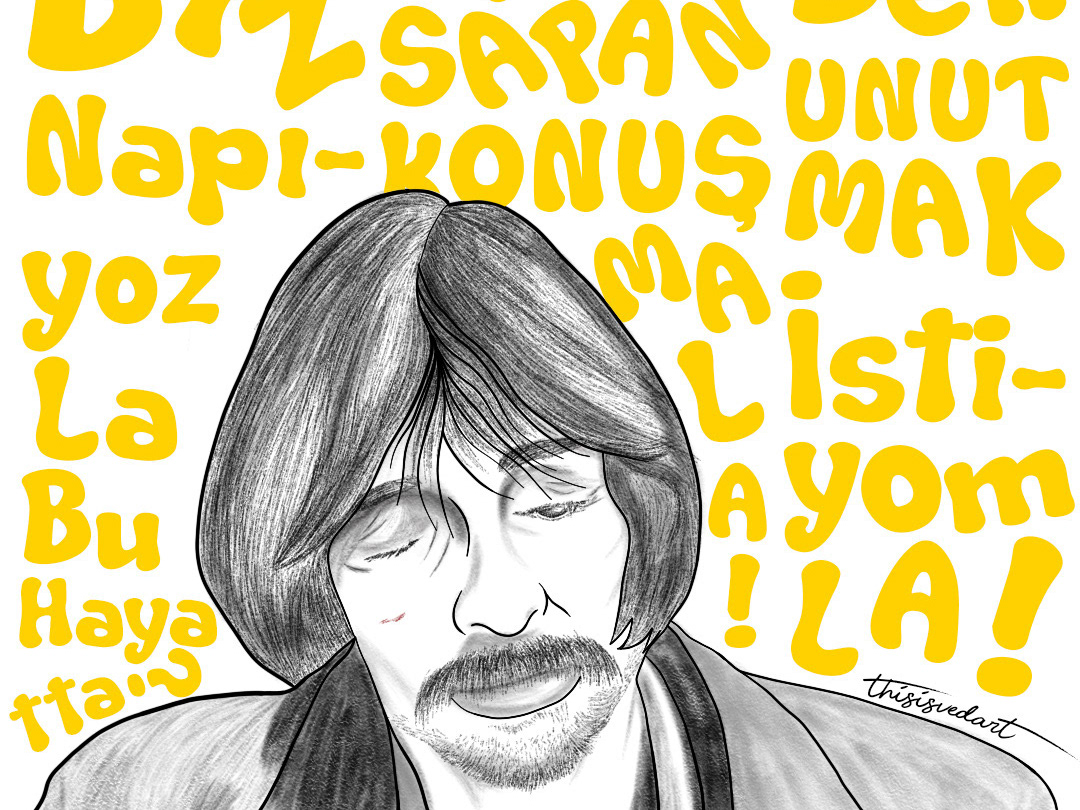 Biz
Napı-
yoz
La
Bu
Haya
tta?
SAPAN
KONUŞ
MA
L
A
!
Ben
UNUT
MAK
İsti-
yom
LA!
thisisvedart